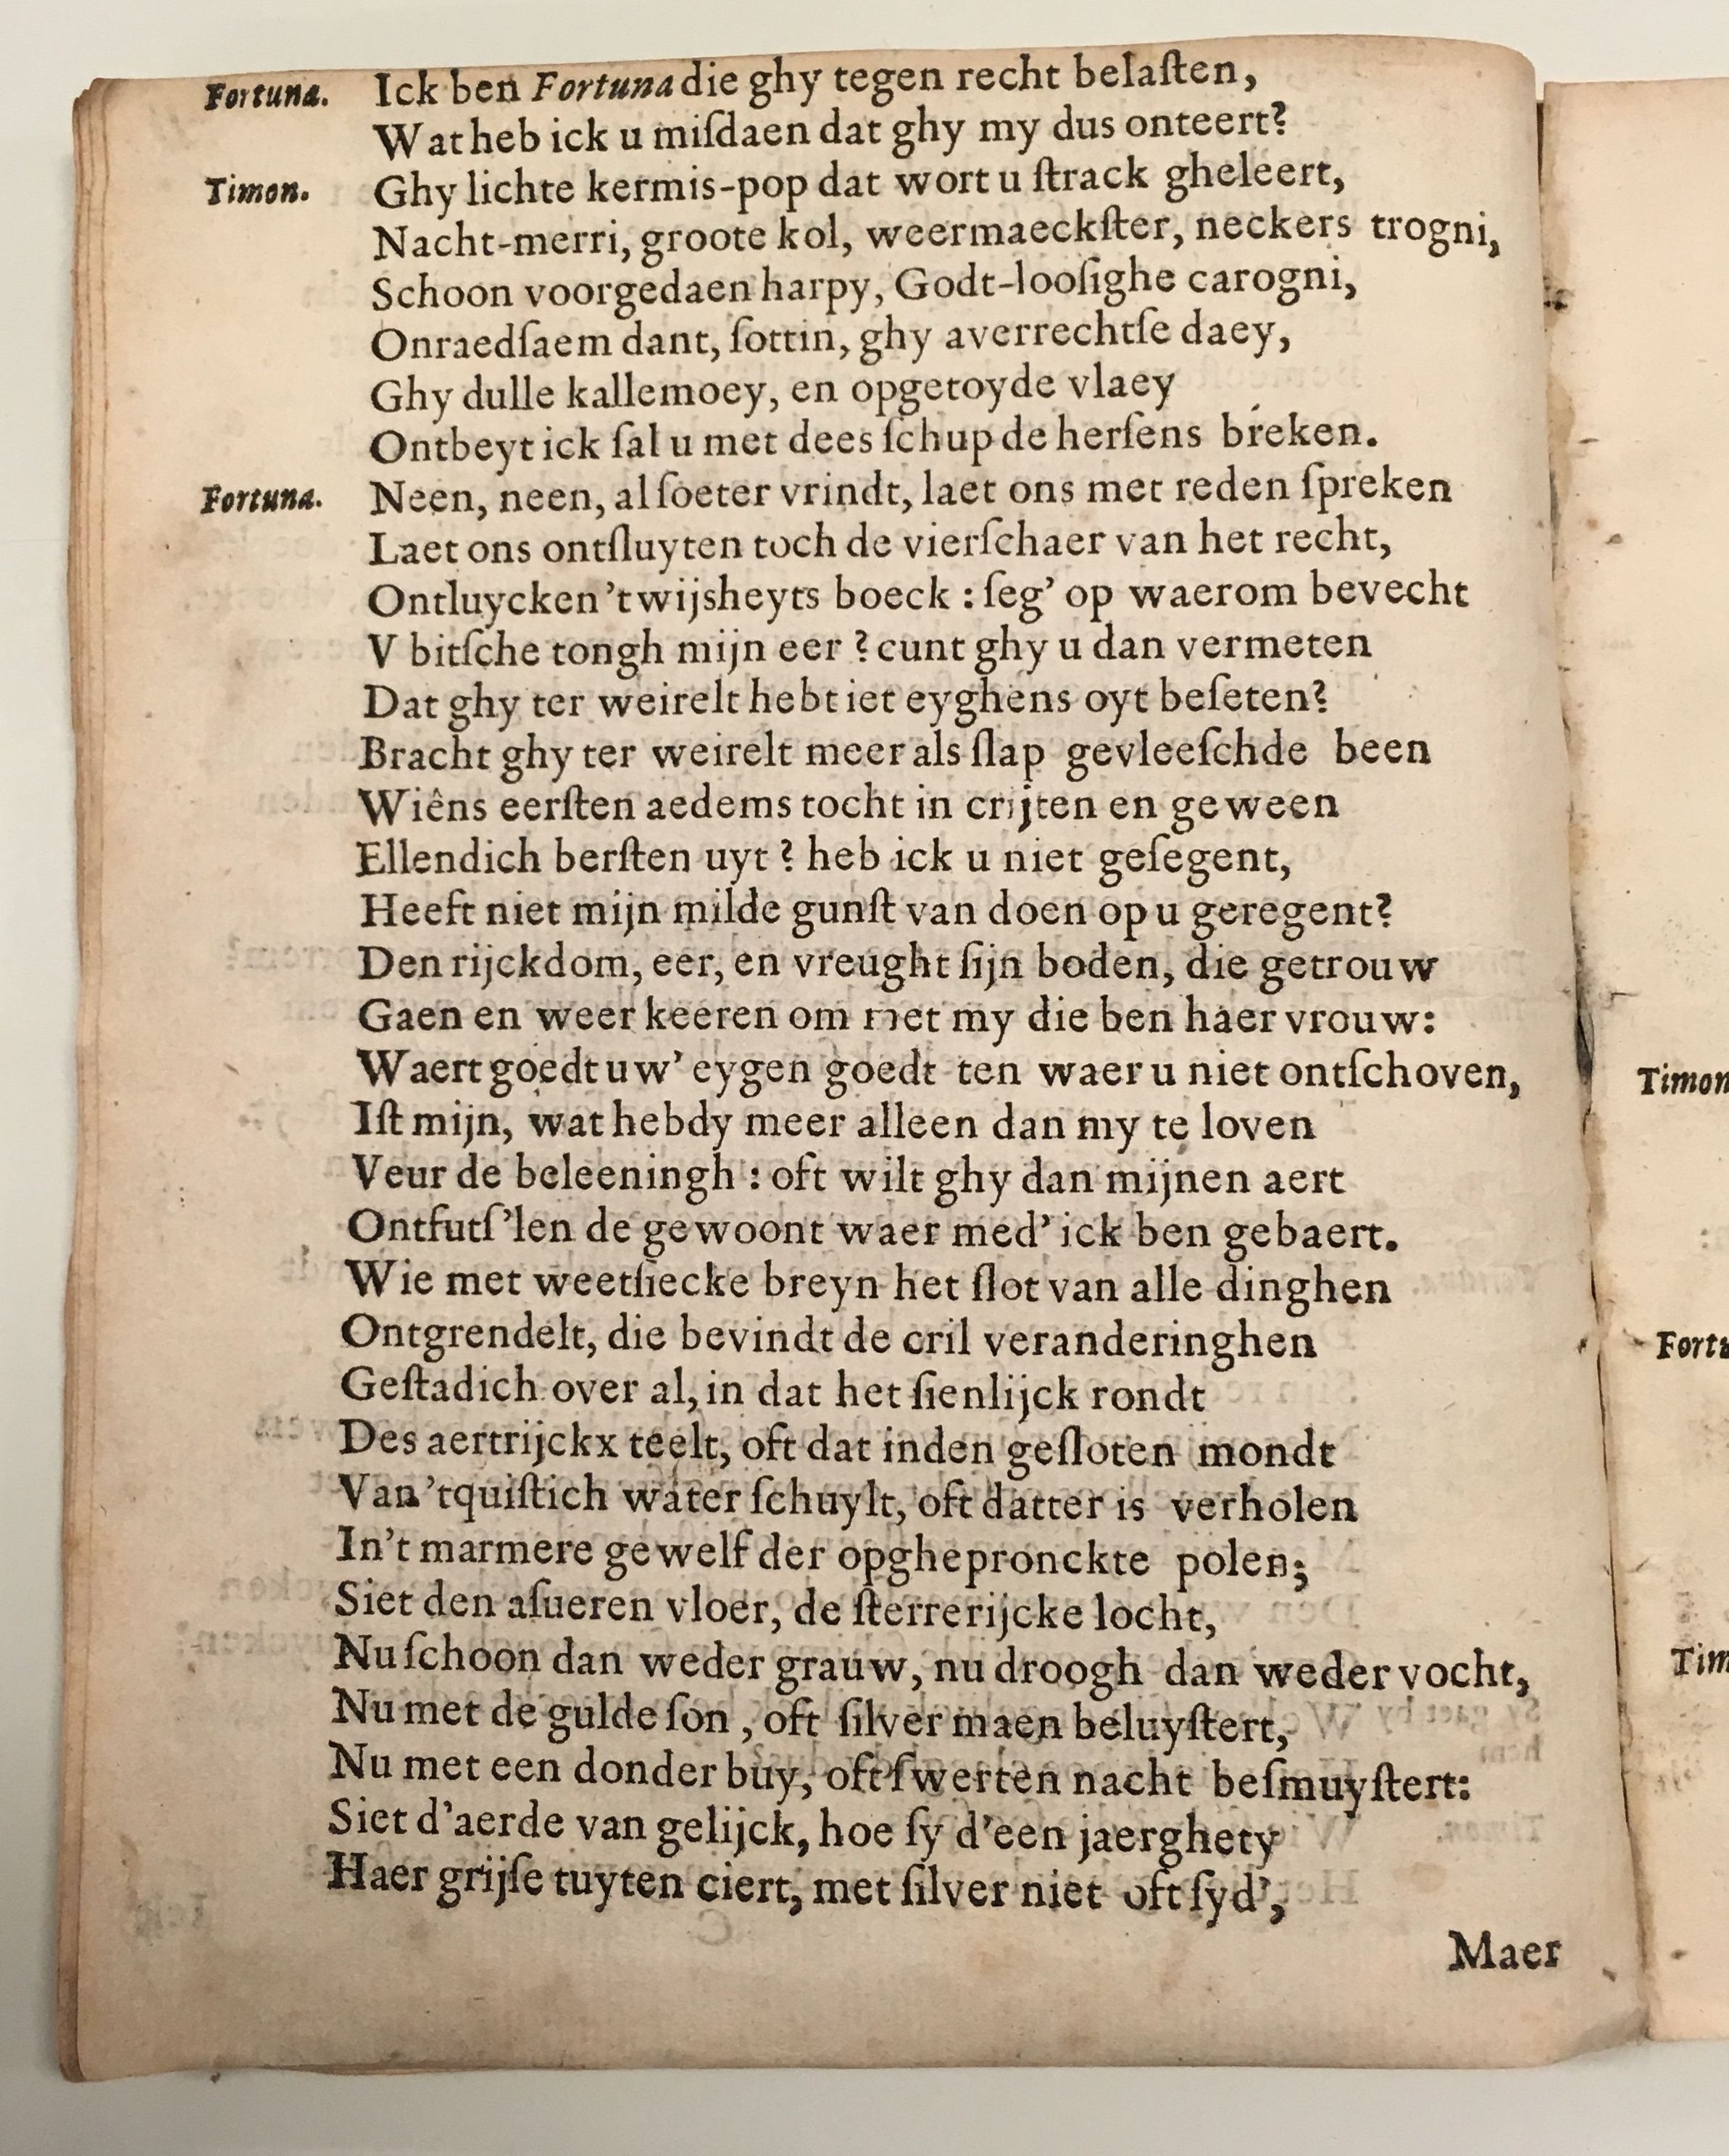 Fortuna. Ick ben Fortuna die ghy tegen recht belaſten,
Wat heb ick u miſdaen dat ghy my dus onteert?
Timon. Ghy lichte kermis-pop dat wort u ſtrack gheleert,
Nacht-merri, groote kol, weermaeckſter, neckers trogni,
Schoon voorgedaen harpy, Godt-looſighe carogni,
Onraedſaem dant, ſottin, ghy averrechtſe daey,
Ghy dulle kallemoey, en opgetoyde vlaey
Ontbeyt ick ſal u met dees ſchup de herſens breken.
Fortuna. Neen, neen, al ſoeter vrindt, laet ons met reden ſpreken
Laet ons ontſluyten toch de vierſchaer van het recht,
Ontluycken 't wijsheyts boeck : ſeg' op waerom bevecht
V bitſche tongh mijn eer ? cunt ghy u dan vermeten
Dat ghy ter weirelt hebt iet eyghens oyt beſeten?
Bracht ghy ter weirelt meer als ſlap gevleeſchde been
Wiêns eerſten aedems tocht in crijten en geween
Ellendich berſten uyt ? heb ick u niet geſegent,
Heeft niet mijn milde gunſt van doen op u geregent?
Den rijckdom, eer, en vreught ſijn boden, die getrouw
Gaen en weer keeren om met my die ben haer vrouw:
Waert goedt uw' eygen goedt ten waer u niet ontſchoven,
Iſt mijn, wat hebdy meer alleen dan my te loven
Veur de beleeningh : oft wilt ghy dan mijnen aert
Ontfutſ'len de gewoont waer med' ick ben gebaert.
Wie met weetſiecke breyn het ſlot van alle dinghen
Ontgrendelt, die bevindt de cril veranderinghen
Geſtadich over al, in dat het ſienlijck rondt
Des aertrijckx teelt, oft dat inden geſloten mondt
Van 'tquiſtich water ſchuylt, oft datter is verholen
In't marmere gewelf der opghepronckte polen;
Siet den aſueren vloer, de ſterrerijcke locht,
Nu ſchoon dan weder grauw, nu droogh dan weder vocht,
Nu met de gulde ſon , oft ſilver maen beluyſtert,
Nu met een donder buy, oft ſwerten nacht beſmuyſtert:
Siet d'aerde van gelijck, hoe ſy d'een jaerghety
Haer grijſe tuyten ciert, met ſilver niet oft ſyd',
Maer
Timon
Fortu
Tim